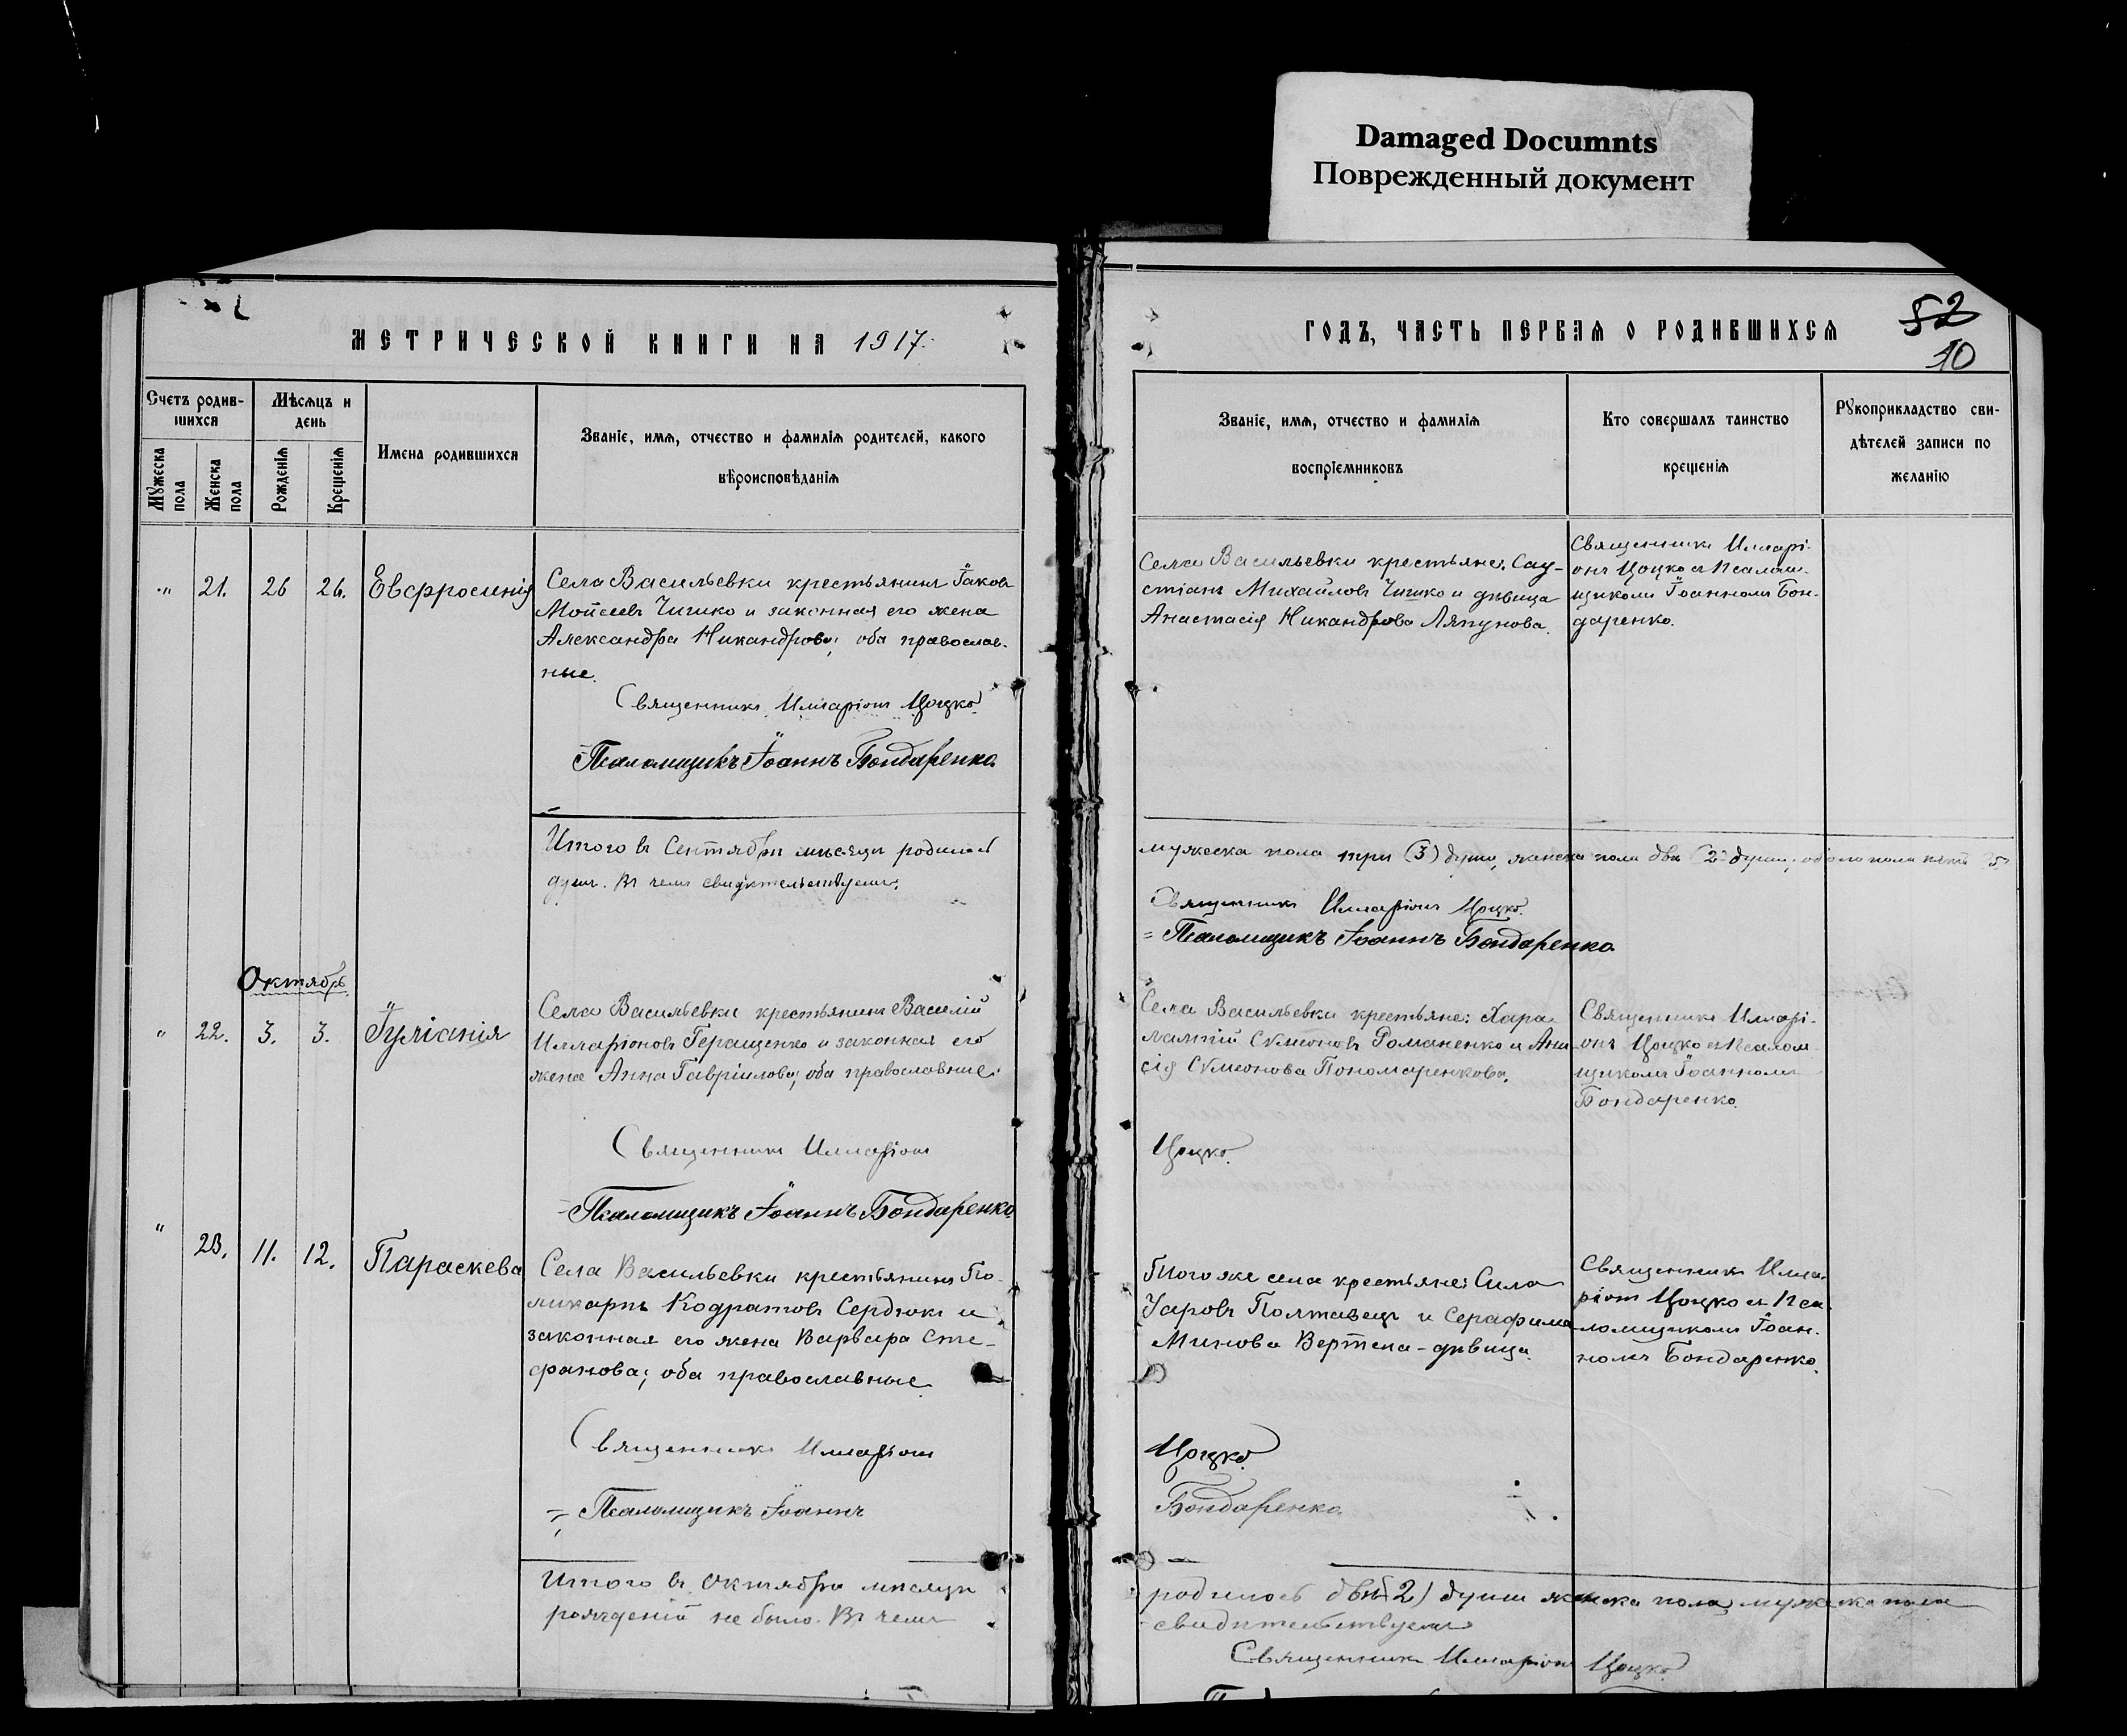 Damaged Documnts
Поврежденный документ
МЕТРИЧЕСКОЙ КНИГИ НА 1917.
ГОДЪ, ЧАСТЬ ПЕРВАЯ О РОДИВШИХСЯ
52
10
Счетъ родив-
шихся
Мѣсяцъ и
день
Мужеска пола
Женска пола
Рожденія
Крещенія
Имена родившихся
Званіе, имя, отчество и фамилія родителей, какого
вѣроисповѣданія
Званіе, имя, отчество и фамилія
воспріемниковъ
Кто совершалъ таинство
крещенія
Рукоприкладство сви-
дѣтелей записи по
желанію
" 21. 26 26. Евфросинія
Села Васильевки крестьянинъ Іаковъ
Мойсеевъ Чишко и законная его жена
Александра Никандрова; оба православ-
ные.
Священникъ Илларіонъ Цоцко
Псаломщикъ Іоаннъ Бондаренко.
Села Васильевки крестьяне: Сау-
стіанъ Михайловъ Чишко и дѣвица
Анастасія Никандрова Ляпунова.
Священникъ Иллари-
онъ Цоцко съ Псалом-
щикомъ Іоанномъ Бон-
даренко.
Итого въ Сентябрѣ мѣсяцѣ родилось
душъ. Въ чемъ свидѣтельствуемъ:
мужеска пола три (3) души, женска пола двѣ (2) души, обоего пола пять (5)
Священникъ Илларіонъ Цоцко.
Псаломщикъ Іоаннъ Бондаренко.
Октябрь
" 22. 3. 3. Іуліанія
Села Васильевки крестьянинъ Василій
Илларіоновъ Геращенко и законная его
жена Анна Гавріилова; оба православные.
Священникъ Илларіонъ
Псаломщикъ Іоаннъ Бондаренко.
Села Васильевки крестьяне: Хара-
лампій Сѵмеоновъ Романенко и Ани-
сія Сѵмеонова Пономаренкова.
Цоцко.
Священникъ Иллари-
онъ Цоцко съ Псалом-
щикомъ Іоанномъ
Бондаренко.
" 23. 11. 12. Параскева
Села Васильевки крестьянинъ По-
ликарпъ Кодратовъ Сердюкъ и
законная его жена Варвара Сте-
фанова; оба православные.
Священникъ Илларіонъ
Псаломщикъ Іоаннъ
Того же села крестьяне: Сила
Уаровъ Полтавецъ и Серафима
Минова Вертела - дѣвица.
Цоцко.
Бондаренко.
Священникъ Илла-
ріонъ Цоцко съ Пса-
ломщикомъ Іоан-
номъ Бондаренко.
Итого въ Октябрѣ мѣсяцѣ
рожденій не было. Въ чемъ
родилось двѣ (2) души женска пола, мужеска пола
свидѣтельствуемъ
Священникъ Илларіонъ Цоцко